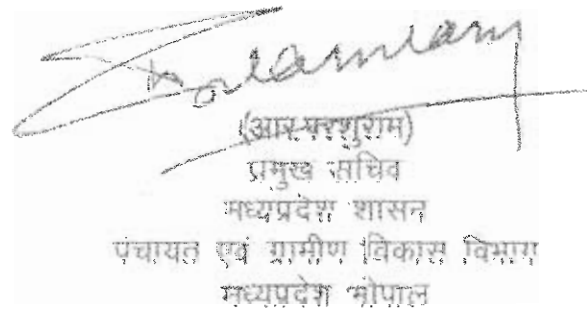 (आर.परशुराम)
प्रमुख सचिव
मध्यप्रदेश शासन
पंचायत एवं ग्रामीण विकास विभाग
मध्यप्रदेश भोपाल